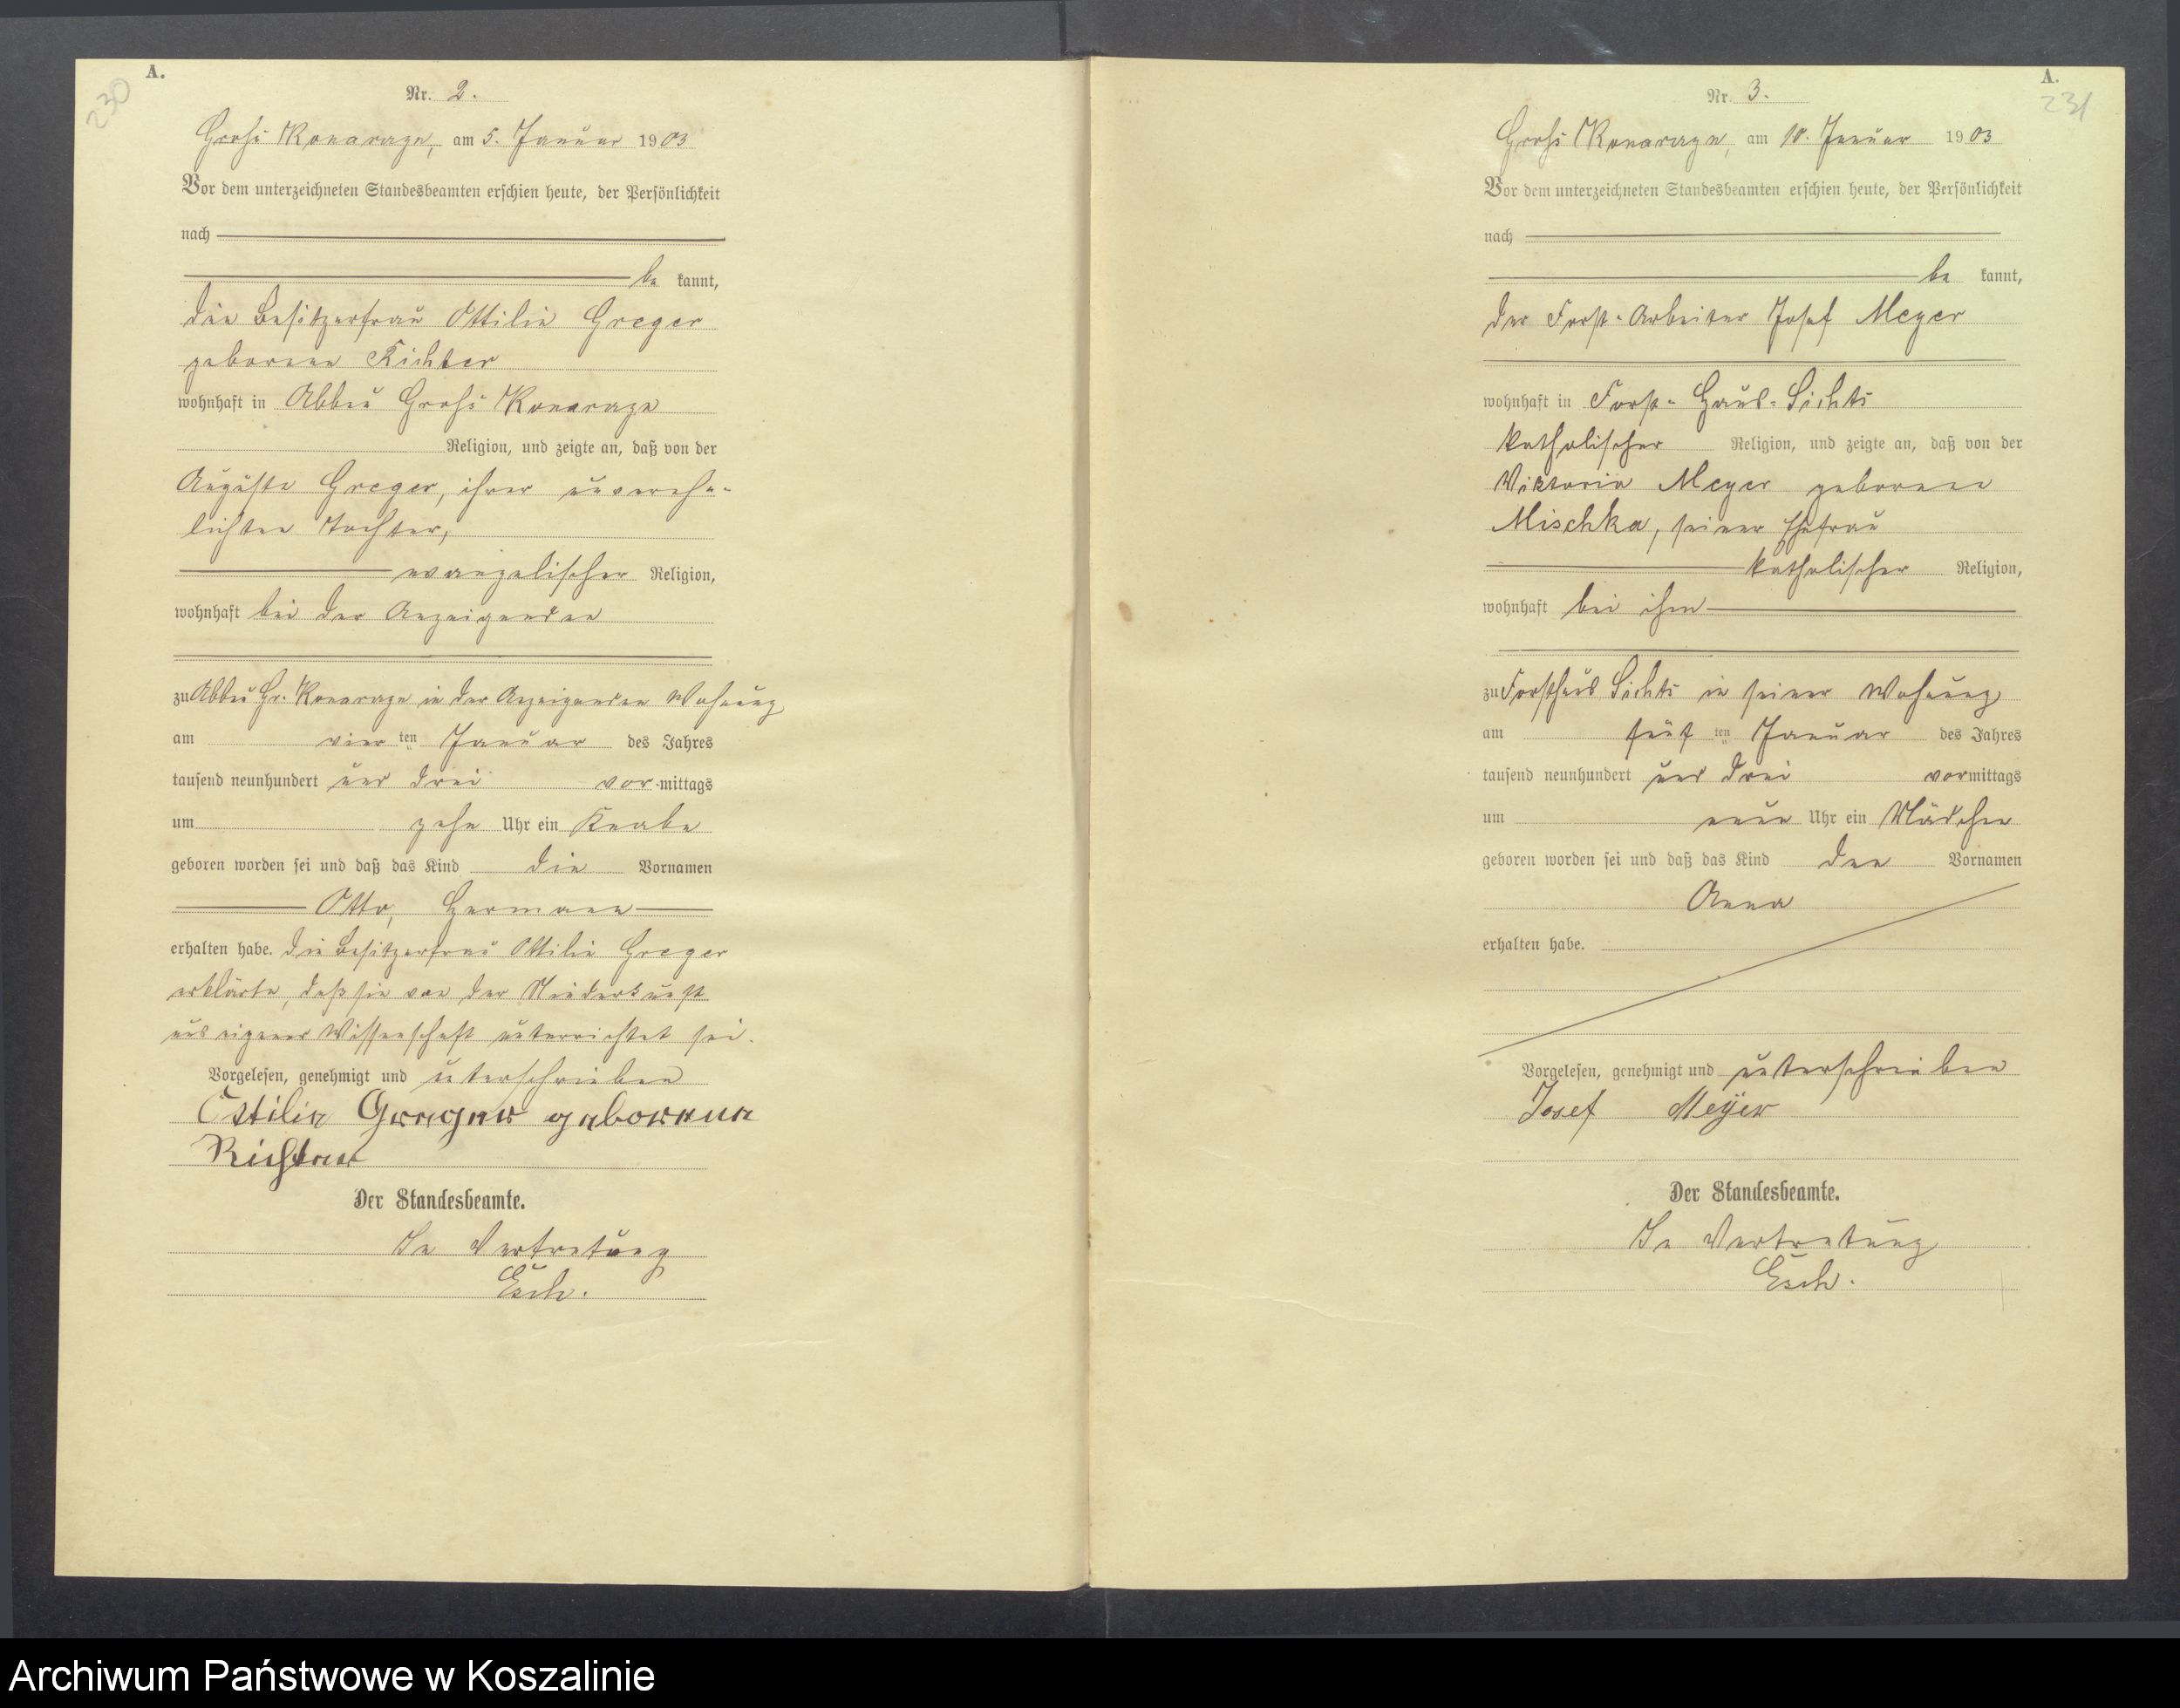 230
A.
Nr. 2.
Groß Konarczyn, am 5. Januar 1903
Vor dem unterzeichneten Standesbeamten erschien heute, der Persönlichkeit
nach
be kannt,
die Besitzerfrau Ottilie Greger
geborene Richter
wohnhaft in Abbau Groß Konarczyn
Religion, und zeigte an, daß von der
Auguste Greger, ihrer unverehe-
lichten Tochter,
evangelischer Religion,
wohnhaft bei der Anzeigenden
zu Abbau Gr. Konarczyn in der Anzeigenden Wohnung
am vier ten Januar des Jahres
tausend neunhundert und drei vor-mittags
um zehn Uhr ein Knabe
geboren worden sei und daß das Kind die Vornamen
Otto, Hermann
erhalten habe. Die Besitzerfrau Ottilie Greger
erklärte, daß sie von der Niederkunft
aus eigener Wissenschaft unterrichtet sei.
Vorgelesen, genehmigt und unterschrieben
Ottilie Greger geborene
Richter
Der Standesbeamte.
In Vertretung
Esch.
A.
231
Nr. 3.
Groß Konarczyn, am 10. Januar 1903
Vor dem unterzeichneten Standesbeamten erschien heute, der Persönlichkeit
nach
be kannt,
der Forst-Arbeiter Josef Meyer
wohnhaft in Forst-Haus-
katholischer Religion, und zeigte an, daß von der
Viktoria Meyer geborene
Mischka, seiner Ehefrau
katholischer Religion,
wohnhaft bei ihm
zu Forsthaus in seiner Wohnung
am fünf ten Januar des Jahres
tausend neunhundert und drei vormittags
um neun Uhr ein Mädchen
geboren worden sei und daß das Kind den Vornamen
Anna
erhalten habe.
Vorgelesen, genehmigt und unterschrieben
Josef Meyer
Der Standesbeamte.
In Vertretung
Esch.
Archiwum Państwowe w Koszalinie